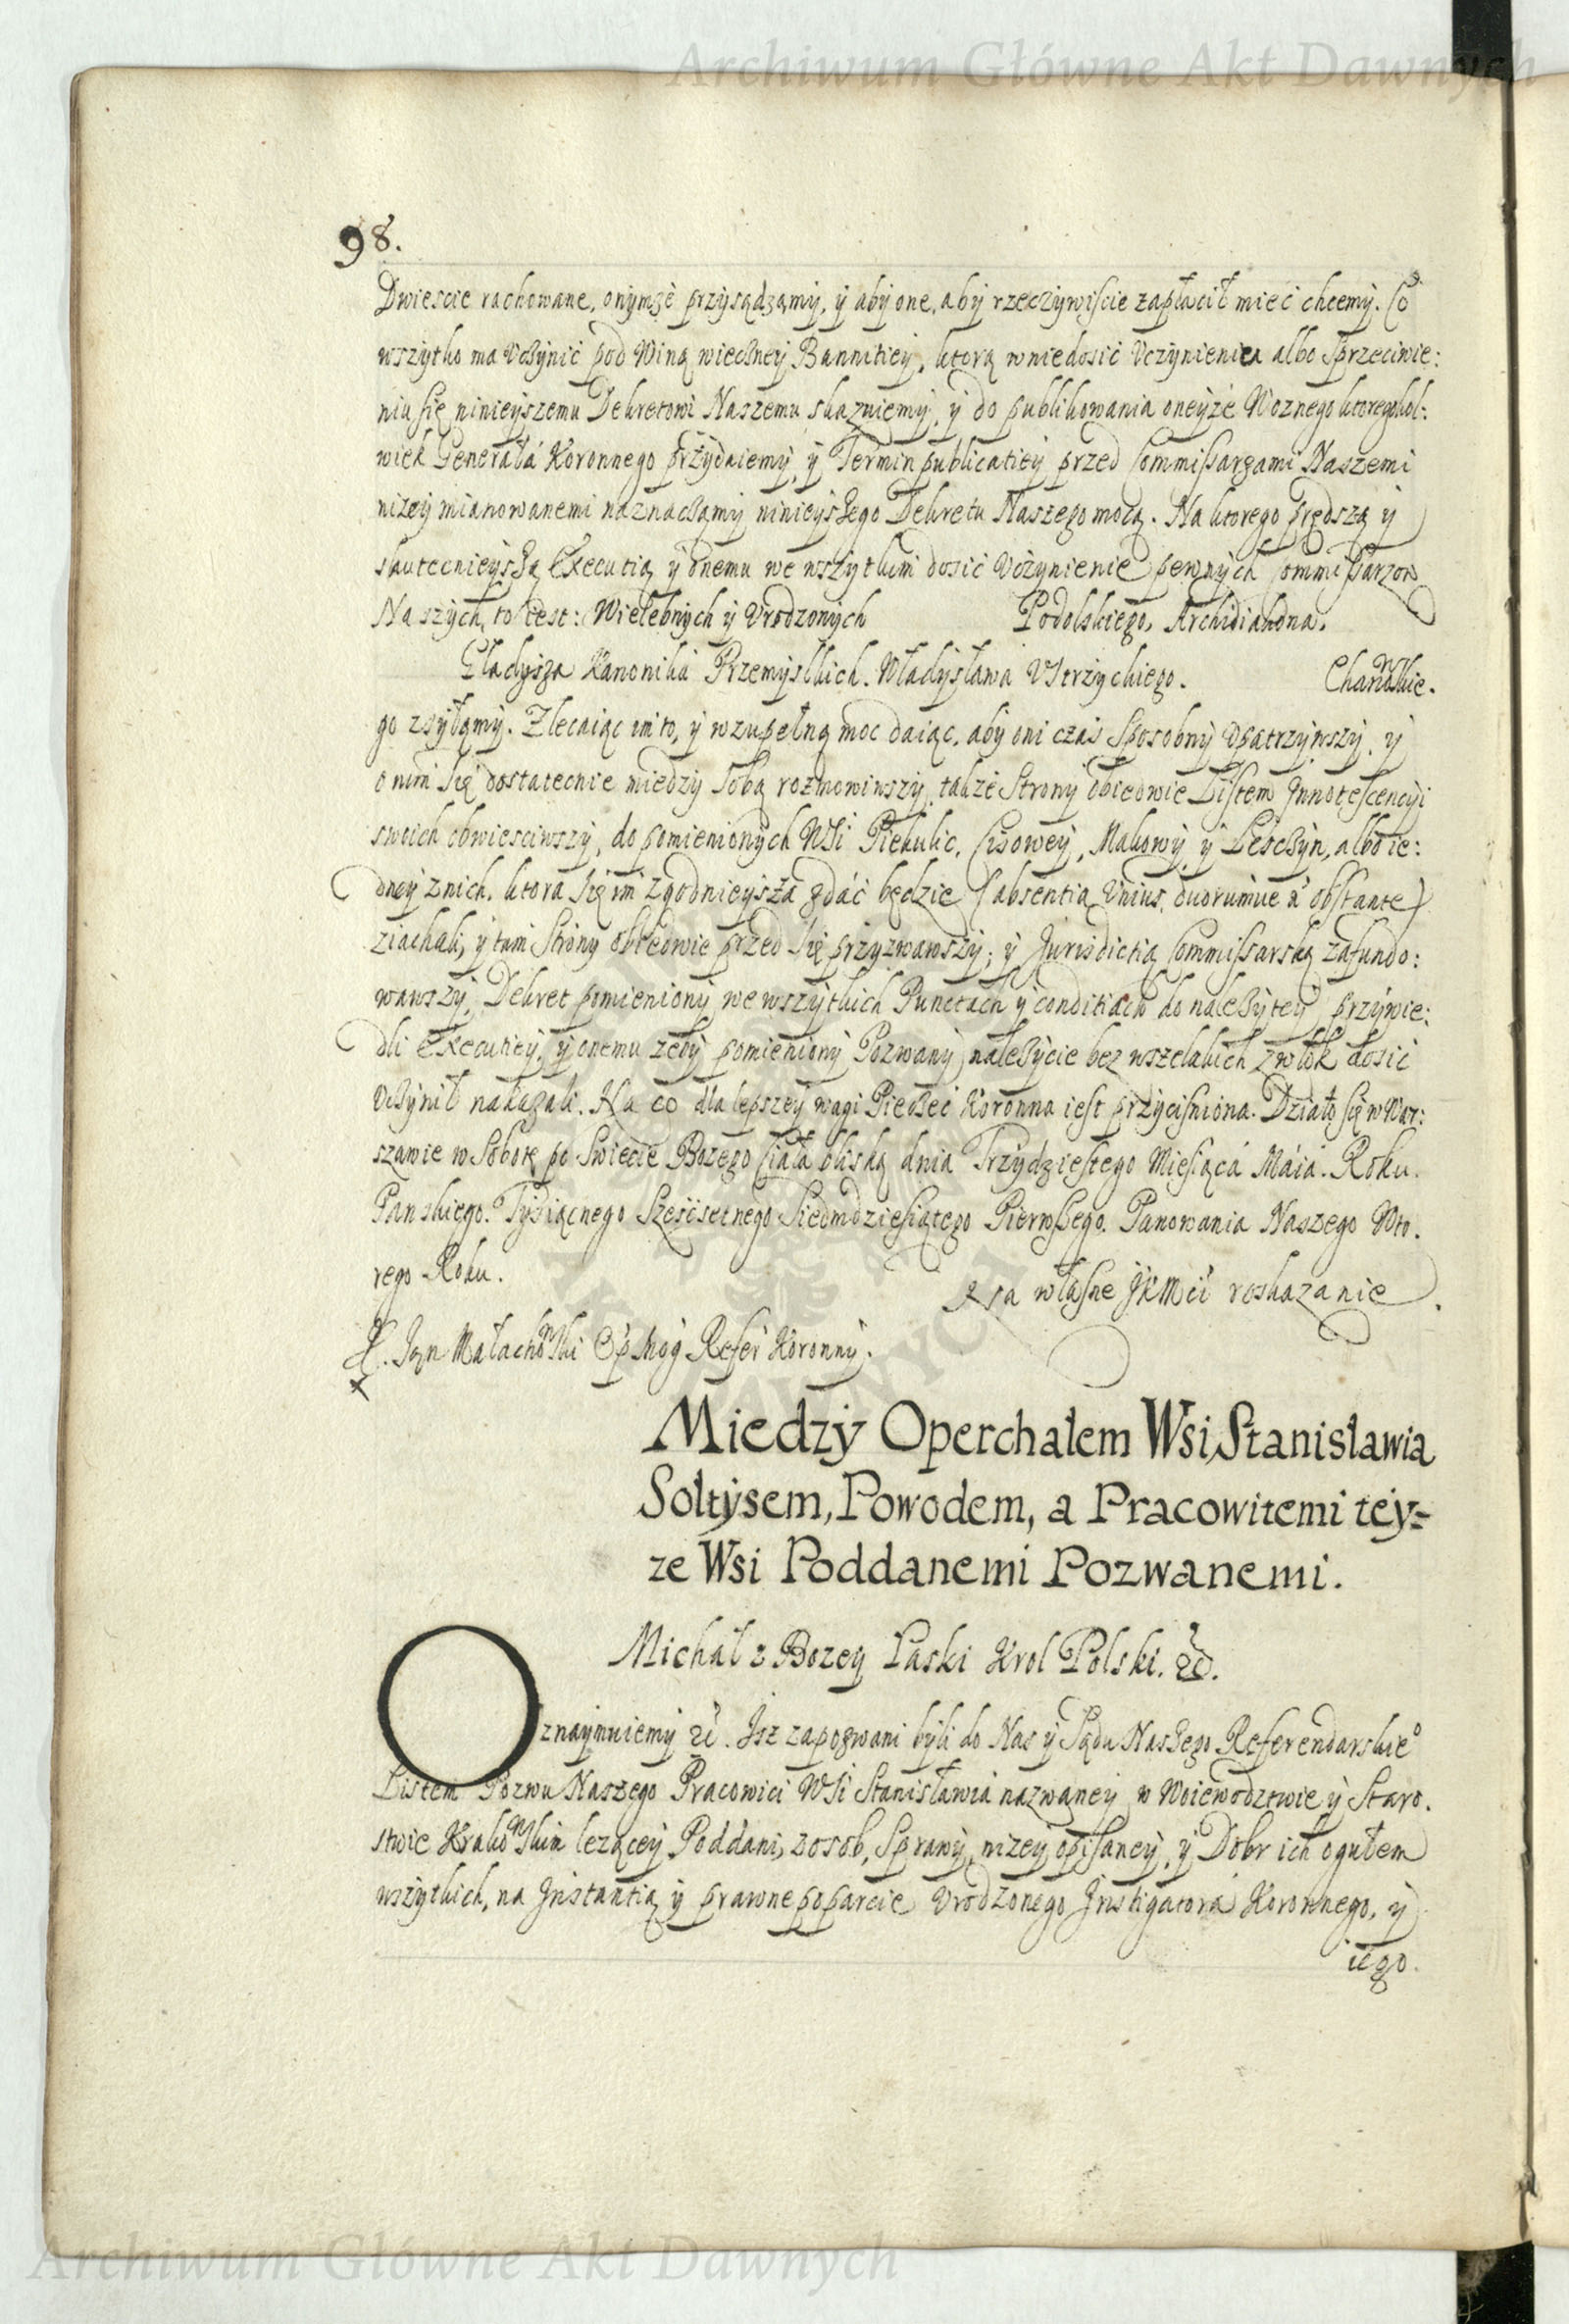 Archiwum Główne Akt Dawnych
98.
Dwiescie rachowane, onymże przysądzamy, y aby one, aby rzeczywiscie zapłacił mieć chcemy. Co
wszytko ma Vczynić pod Winą wieczney Bannitiey, ktorą w niedosić Vczynieniu albo Sprzeciwie:
niu się ninieyszemu Dekretowi Naszemu skazuiemy, y do publikowania oneyże Woznego ktoregokol:
wiek Generała Koronnego przydaiemy, y Termin publicatiey przed Commissarzami Naszemi
niżey mianowanemi naznaczamy ninieyszego Dekretu Naszego mocą. Na ktorego prędszą y
skutecznieyszą Executią y onemu we wszytkim dosić Vczynienie pewnych Commissarzow
Naszych, to iest: Wielebnych y Vrodzonych Podolskiego, Archidiakona,
Gładysza Kanonika Przemyslkich. Władysława Vstrzyckiego. Chanowskie.
go zsyłamy. Zlecaiąc im to, y w zupełną moc daiąc, aby oni czas Sposobny Vpatrzywszy, y
o nim się dostatecnie miedzy sobą rozmowiwszy, także Strony obiedwie Listem Innotescencyi
swoich obwiesciwszy, do pomienionych Wsi Piekulic, Cisowey, Makowy y Leszczyn, albo ie:
dney z nich, ktora się im zgodnieysza zdáć będzie (absentia Vnius, duorumue ñ obstante)
ziachali, y tam Strony obiedwie przed się przyzwawszy, y Jurisdictią Commissarską zafundo:
wawszy, Dekret pomieniony we wszytkich Punctach y conditiach do należytey przywie:
dli Executiey, y onemu żeby pomieniony Pozwany należycie bez wszelakich zwłok dosić
Vczynił nakazali. Na co dla lepszey wagi Pieczeć Koronna iest przycisniona. Działo się w War:
szawie w Sobotę po Swięcie Bożego Ciała bliską dnia Trzydziestego Miesiąca Máia. Roku.
Panskiego. Tysiącnego Szescsetnego Siedmdziesiątego Pierwszego. Panowania Naszego Wto.
rego Roku.
Na własne JKMci roskazanie.
X. Jan Małachowski Op Mog Refer Koronny.
Miedzy Operchałem Wsi Stanisławia
Sołtysem, Powodem, a Pracowitemi tey=
ze Wsi Poddanemi Pozwanemi.
Michał z Bozey Łaski Krol Polski. &c.
Oznaymuiemy &c. Jsz zapozwani byli do Nas y Sądu Naszego Referendarskiego
Listem Pozwu Naszego Pracowici Wsi Stanisławia nazwaney w Woiewodztwie y Staro.
stwie Krakowskim leżącey Poddani, z osob, Sprawy niżey opisaney, y Dobr ich ogułem
wszytkich, na Jnstantią y prawne poparcie Vrodzonego Jnstigatora Koronnego, y
iego.
Archiwum Główne Akt Dawnych